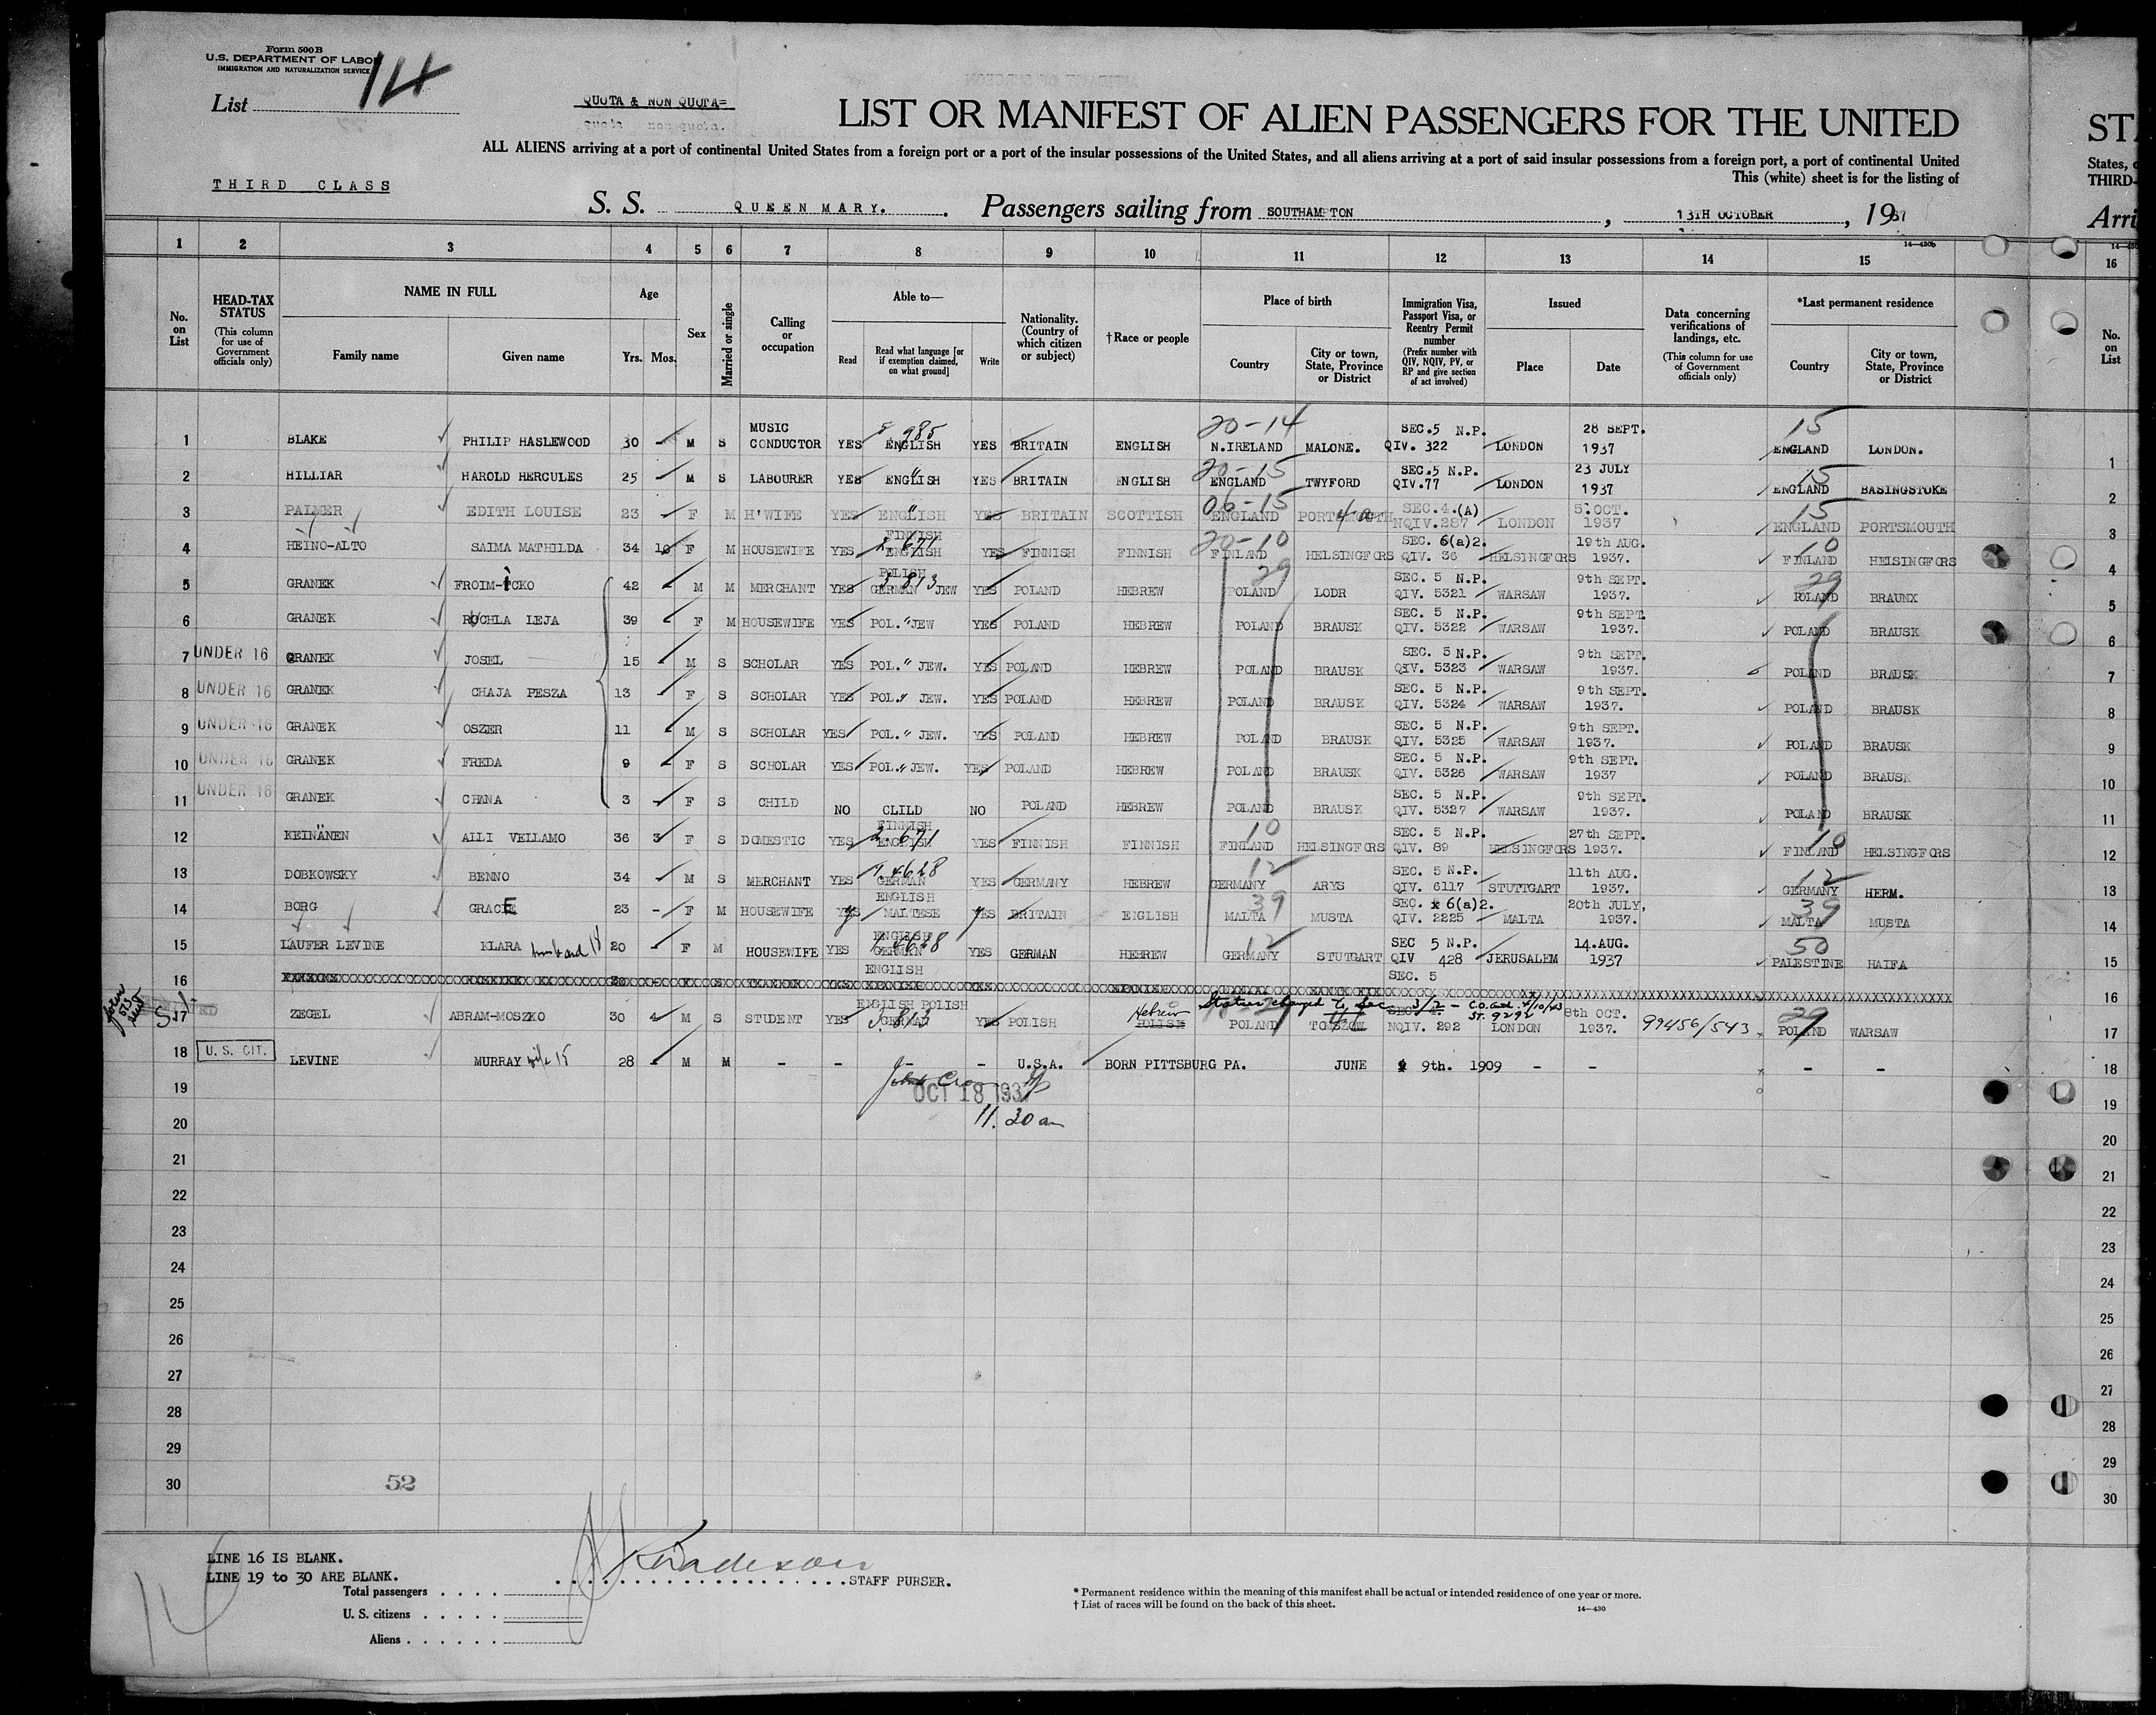 Form 500 B
U.S. DEPARTMENT OF LABOR
IMMIGRATION AND NATURALIZATION SERVICE
List 14
QUOTA & NON QUOTA=
LIST OR MANIFEST OF ALIEN PASSENGERS FOR THE UNITED
ALL ALIENS arriving at a port of continental United States from a foreign port or a port of the insular possessions of the United States, and all aliens arriving at a port of said insular possessions from a foreign port, a port of continental United
This (white) sheet is for the listing of
THIRD CLASS
S. S. QUEEN MARY. Passengers sailing from SOUTHAMPTON, 13TH OCTOBER, 1937
ST
States,
THIRD-
Arri
14—430b
1 2 3 4 5 6 7 8 9 10 11 12 13 14 15 16
No. on List
HEAD-TAX STATUS (This column for use of Government officials only)
NAME IN FULL Family name Given name
Age Yrs. Mos.
Sex
Married or single
Calling or occupation
Able to— Read Read what language [or if exemption claimed, on what ground] Write
Nationality. (Country of which citizen or subject)
†Race or people
Place of birth Country City or town, State, Province or District
Immigration Visa, Passport Visa, or Reentry Permit number (Prefix number with QIV, NQIV, PV, or RP and give section of act involved)
Issued Place Date
Data concerning verifications of landings, etc. (This column for use of Government officials only)
*Last permanent residence Country City or town, State, Province or District
No. on List
1 BLAKE PHILIP HASLEWOOD 30 - M S MUSIC CONDUCTOR YES 985 ENGLISH YES BRITAIN ENGLISH 20-14 N.IRELAND MALONE. SEC.5 N.P. QIV. 322 LONDON 28 SEPT. 1937 15 ENGLAND LONDON. 1
2 HILLIAR HAROLD HERCULES 25 - M S LABOURER YES ENGLISH " YES BRITAIN ENGLISH 20-15 ENGLAND TWYFORD SEC.5 N.P. QIV.77 LONDON 23 JULY 1937 15 ENGLAND BASINGSTOKE 2
3 PALMER EDITH LOUISE 23 - F M H'WIFE YES ENGLISH " YES BRITAIN SCOTTISH 06-15 ENGLAND PORTSMOUTH SEC.4.(A) NQIV.287 LONDON 5:OCT. 1937 15 ENGLAND PORTSMOUTH 3
4 HEINO-ALTO SAIMA MATHILDA 34 10 F M HOUSEWIFE YES FINNISH ENGLISH 2 671 YES FINNISH FINNISH 20-10 FINLAND HELSINGFORS SEC. 6(a)2. QIV. 36 HELSINGFORS 19th AUG. 1937. 10 FINLAND HELSINGFORS 4
5 GRANEK FROIM-ICKO 42 M M MERCHANT YES POLISH GERMAN JEW 3 813 YES POLAND HEBREW 29 POLAND LODR SEC. 5 N.P. QIV. 5321 WARSAW 9th SEPT. 1937. 29 POLAND BRAUNX 5
6 GRANEK RUCHLA LEJA 39 F M HOUSEWIFE YES POL. " JEW YES POLAND HEBREW POLAND BRAUSK SEC. 5 N.P. QIV. 5322 WARSAW 9th SEPT. 1937. POLAND BRAUSK 6
7 UNDER 16 GRANEK JOSEL 15 M S SCHOLAR YES POL. " JEW. YES POLAND HEBREW POLAND BRAUSK SEC. 5 N.P. QIV. 5323 WARSAW 9th SEPT. 1937. POLAND BRAUSK 7
8 UNDER 16 GRANEK CHAJA PESZA 13 F S SCHOLAR YES POL. " JEW. YES POLAND HEBREW POLAND BRAUSK SEC. 5 N.P. QIV. 5324 WARSAW 9th SEPT. 1937. POLAND BRAUSK 8
9 UNDER 16 GRANEK OSZER 11 M S SCHOLAR YES POL. " JEW. YES POLAND HEBREW POLAND BRAUSK SEC. 5 N.P. QIV. 5325 WARSAW 9th SEPT. 1937. POLAND BRAUSK 9
10 UNDER 16 GRANEK FREDA 9 F S SCHOLAR YES POL. " JEW. YES POLAND HEBREW POLAND BRAUSK SEC. 5 N.P. QIV. 5326 WARSAW 9th SEPT. 1937 POLAND BRAUSK 10
11 UNDER 16 GRANEK CHANA 3 - F S CHILD NO CLILD NO POLAND HEBREW POLAND BRAUSK SEC. 5 N.P. QIV. 5327 WARSAW 9th SEPT. 1937. POLAND BRAUSK 11
12 KEINÄNEN AILI VELLAMO 36 3 F S DOMESTIC YES FINNISH ENGLISH 2 671 YES FINNISH FINNISH 10 FINLAND HELSINGFORS SEC. 5 N.P. QIV. 89 HELSINGFORS 27th SEPT. 1937. 10 FINLAND HELSINGFORS 12
13 DOBKOWSKY BENNO 34 - M S MERCHANT YES GERMAN 4628 YES GERMANY HEBREW 12 GERMANY ARYS SEC. 5 N.P. QIV. 6117 STUTTGART 11th AUG. 1937. 12 GERMANY HERM. 13
14 BORG GRACIE 23 - F M HOUSEWIFE YES ENGLISH MALTESE YES BRITAIN ENGLISH 39 MALTA MUSTA SEC. 6(a)2. QIV. 2225 MALTA 20th JULY, 1937. 39 MALTA MUSTA 14
15 LAUFER LEVINE KLARA husband 18 20 - F M HOUSEWIFE YES ENGLISH GERMAN 4628 YES GERMAN HEBREW 12 GERMANY STUTGART SEC 5 N.P. QIV 428 JERUSALEM 14.AUG. 1937 50 PALESTINE HAIFA 15
16 ENGLISH SEC. 5 16
17 ZEGEL ABRAM-MOSZKO 30 4 M S STUDENT YES ENGLISH POLISH GERMAN 3 813 YES POLISH Hebrew POLISH POLAND Status changed to Sec 3/2 - NQIV. 292 LONDON 8th OCT. 1937. 99456/543 29 POLAND WARSAW 17
18 U. S. CIT. LEVINE MURRAY wife 15 28 M M - - - - U.S.A. BORN PITTSBURG PA. JUNE 9th. 1909 - - - - 18
19 OCT 18 1937 19
20 11.30 am 20
21 21
22 22
23 23
24 24
25 25
26 26
27 27
28 28
29 29
30 52 30
LINE 16 IS BLANK.
LINE 19 to 30 ARE BLANK.
STAFF PURSER.
Total passengers
U. S. citizens
Aliens
14
* Permanent residence within the meaning of this manifest shall be actual or intended residence of one year or more.
† List of races will be found on the back of this sheet.
14—430